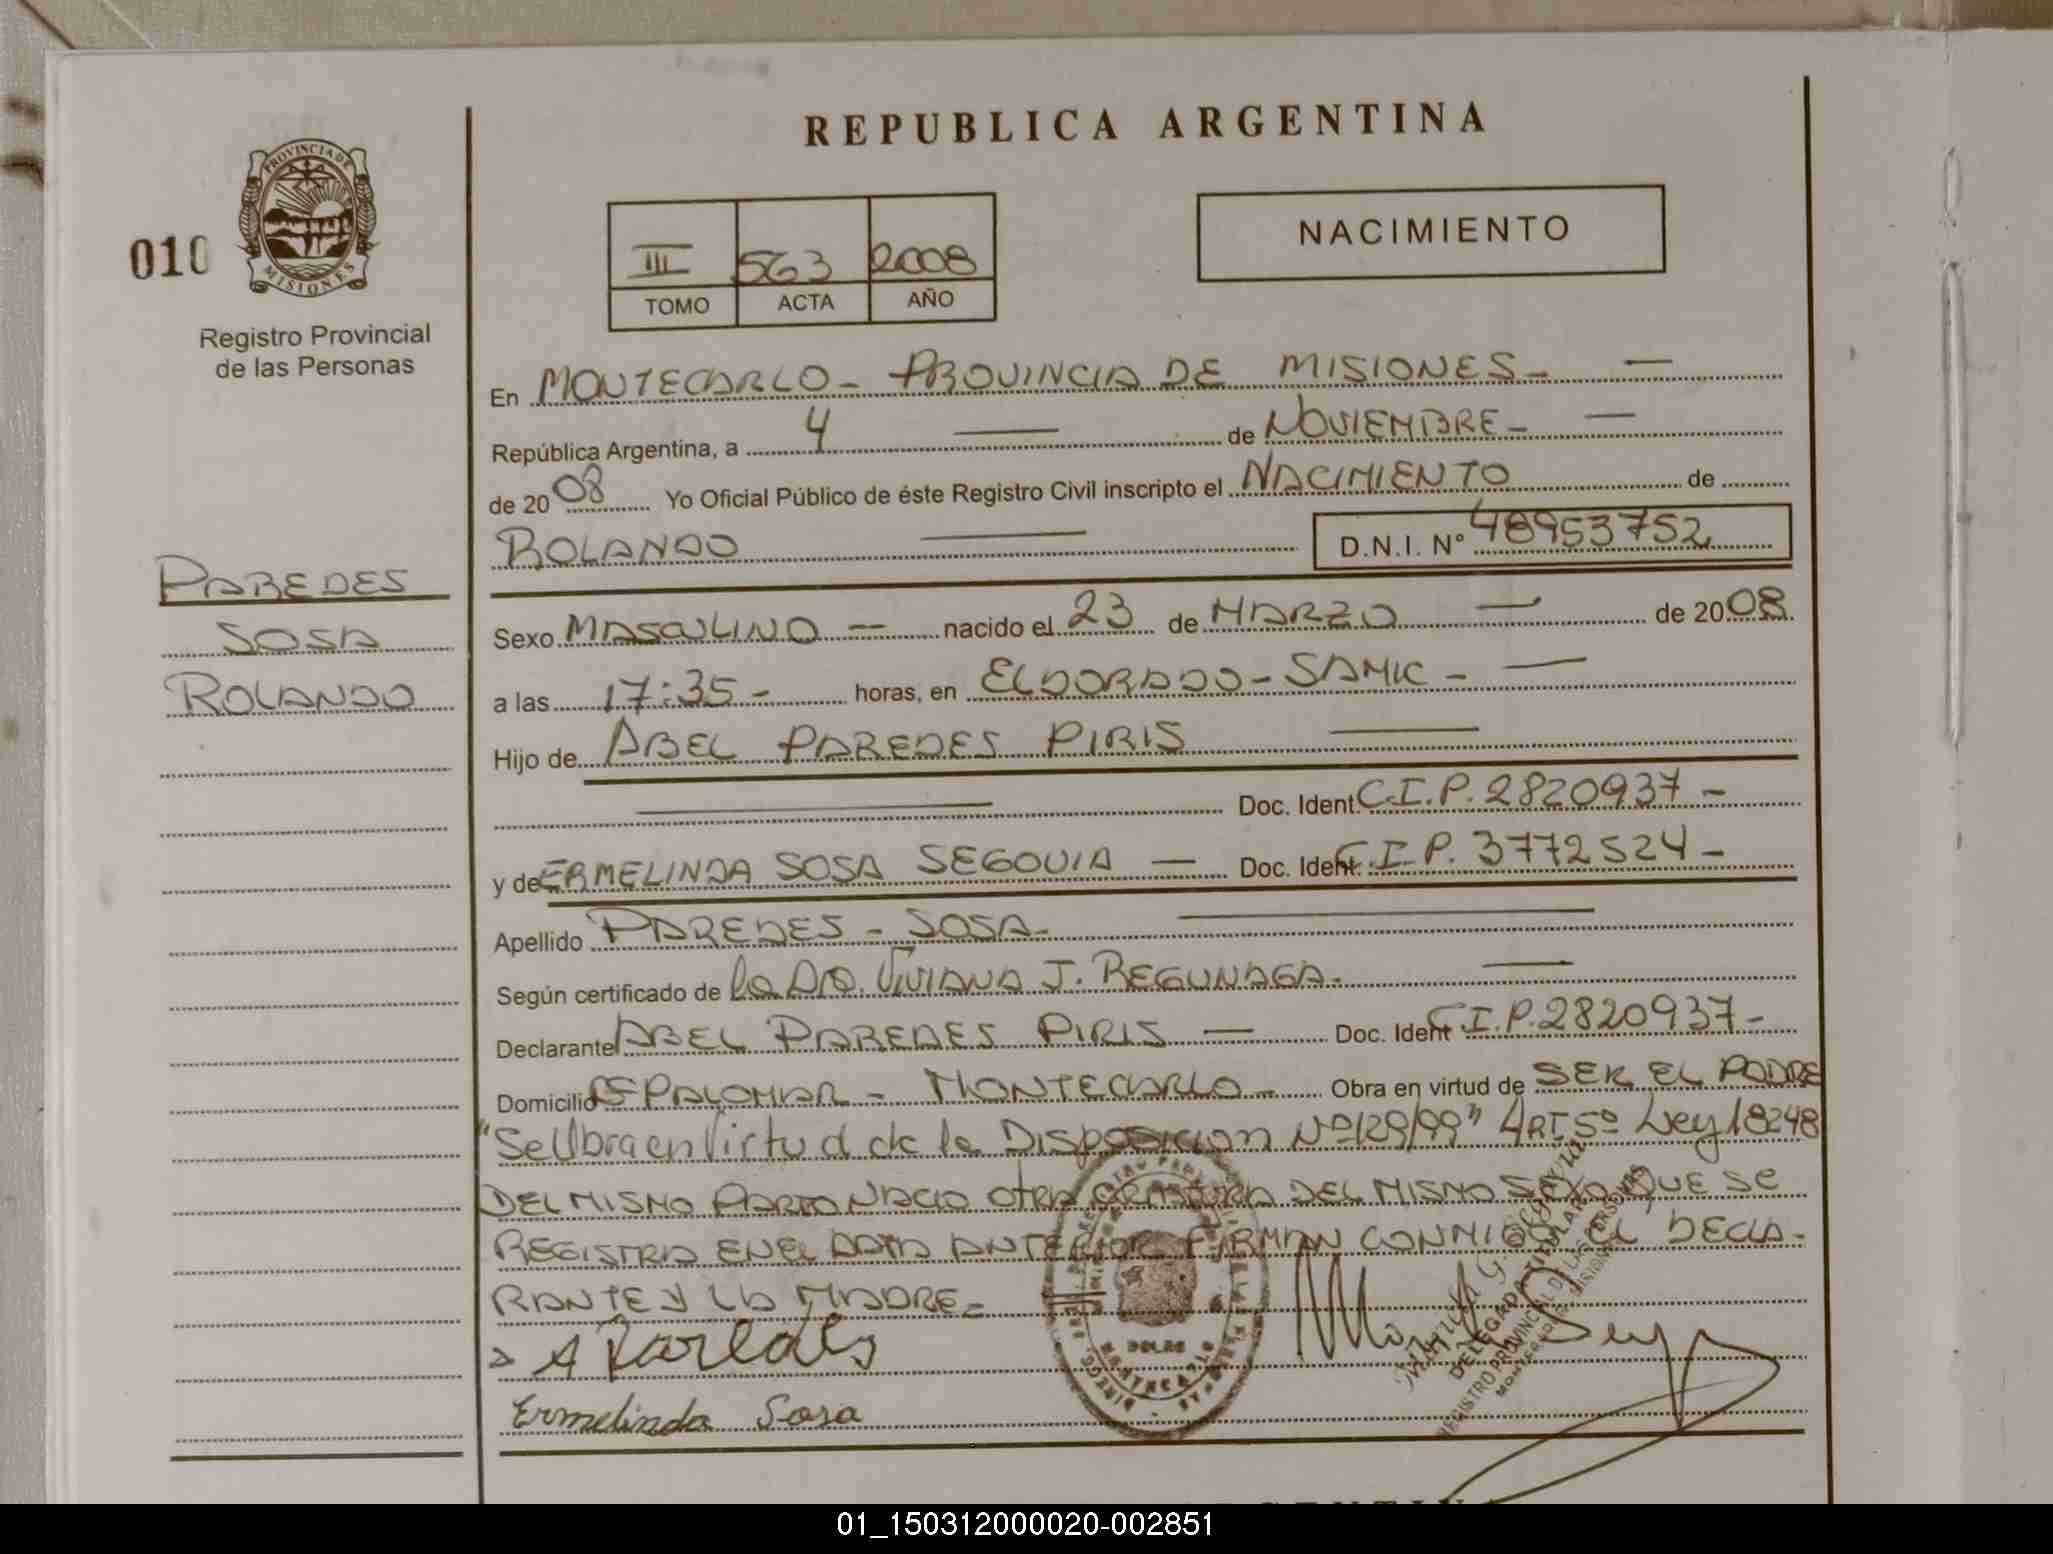 REPUBLICA ARGENTINA
PROVINCIA DE
MISIONES
010
Registro Provincial
de las Personas
III 563 2008
TOMO ACTA AÑO
NACIMIENTO
En MONTECARLO - PROVINCIA DE MISIONES -
República Argentina, a 4 de NOVIEMBRE -
de 2008 Yo Oficial Público de éste Registro Civil inscripto el NACIMIENTO de
ROLANDO D.N.I. N° 48953752
PAREDES
SOSA
ROLANDO
Sexo MASCULINO - nacido el 23 de MARZO - de 2008.
a las 17:35 - horas, en ELDORADO - SAMIC -
Hijo de ABEL PAREDES PIRIS
Doc. Ident. C.I.P. 2820937 -
y de ERMELINDA SOSA SEGOVIA - Doc. Ident. C.I.P. 3772524 -
Apellido PAREDES - SOSA -
Según certificado de la Dra. VIVIANA J. REGUNAGA -
Declarante ABEL PAREDES PIRIS - Doc. Ident C.I.P. 2820937 -
Domicilio PALOMAR - MONTECARLO - Obra en virtud de SER EL PADRE
"Se Obra en Virtud de la DISPOSICION Nº 129/99" ART 5º Ley 18248
DEL MISMO PARTO NACIO OTRA CRIATURA DEL MISMO SEXO QUE SE
REGISTRA EN EL ACTA ANTERIOR FIRMAN CONMIGO EL DECLA-
RANTE Y LA MADRE -
A Paredes
Ermelinda Sosa
DELEGADA TITULAR
REGISTRO PROVINCIAL DE LAS PERSONAS
01_150312000020-002851